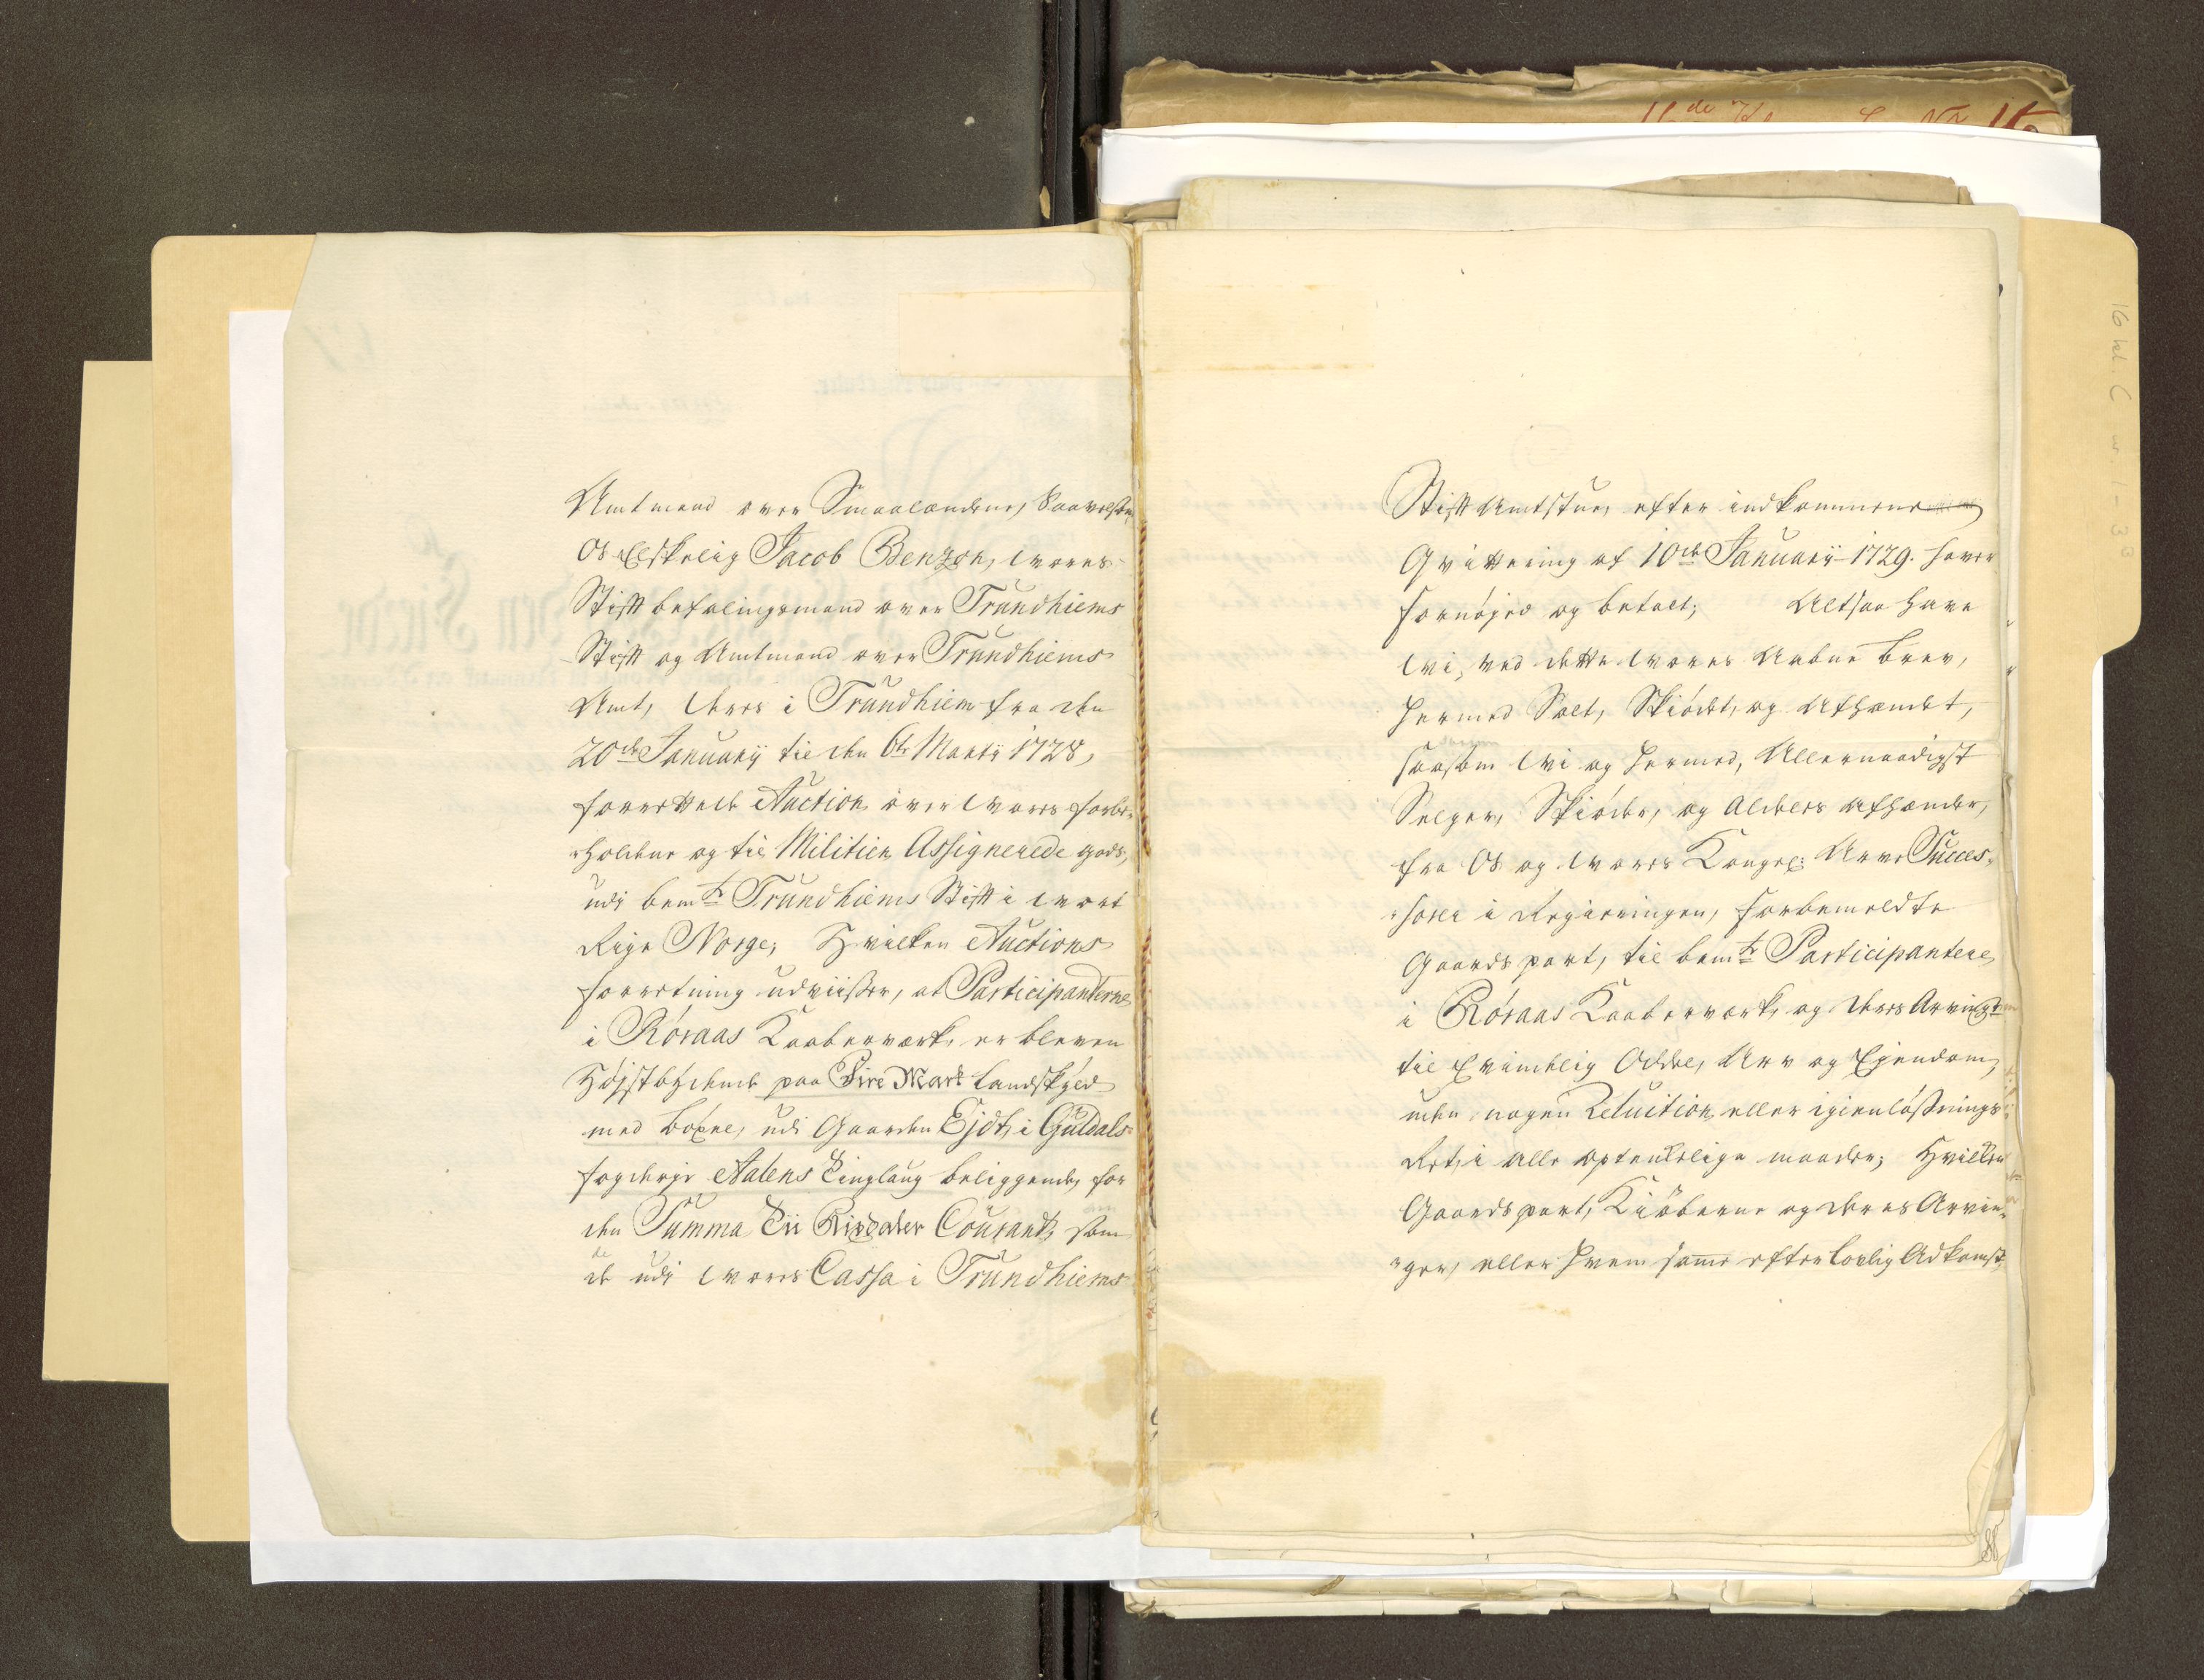 Amtmand over Smaalandene, Saavelsom
Os Elskelig Jacob Benzon, Vores
Stiftbefalingsmand over Trundhiems
Stift og Amtmand over Trundhiems
Amt, Veres i Trundhiem fra den
20de January til den 6te Marty 1728,
forrettede Auction over Vores forbe-
-holdene og til Militien Assignerede gods,
udi bemte Trundhiems Stift i Vort
Rige Norge, Hvilken Auctions
forretning udviisser, at Participanterne
i Röraas Kaaberværk, er bleven
Höjstbÿdende paa Fire Mark Landskÿld
med böxel, udi Gaarden Ejdt, i Guldals
fogderje Aalens Tinglaug beliggende, for
den Summa Tii Rixdaler Courant, som
de
de udi Vores Cassa i Trundhiems
Stiftamtstue, efter indkommene
Qvittering af 10de January 1729. haver
fornöjed og betalt; Altsaa have
Vi, ved dette Vores Aabne brev,
hermed Solt, Skiödet, og Afhændet,
saasom Vi og hermed, Allernaadigst
Selger, Skiöder, og Aldeles afhænder,
fra Os og Vores Kongel: Arve Succes-
-sorer i Regieringen, forbemeldte
Gaardspart, til bemte Participantere
i Röraas Kaaberværk, og deres Arvinger
til Evindelig Oddel, Arv og Ejendom,
uden nogen Reluition eller igienlössnings
Ret, i alle optenkelige maader; Hvilken
Gaardspart, Kiöberne og deres Arvin-
-ger, eller hvem samme efter lovlig Adkomst
16 kd. C nr 1-33